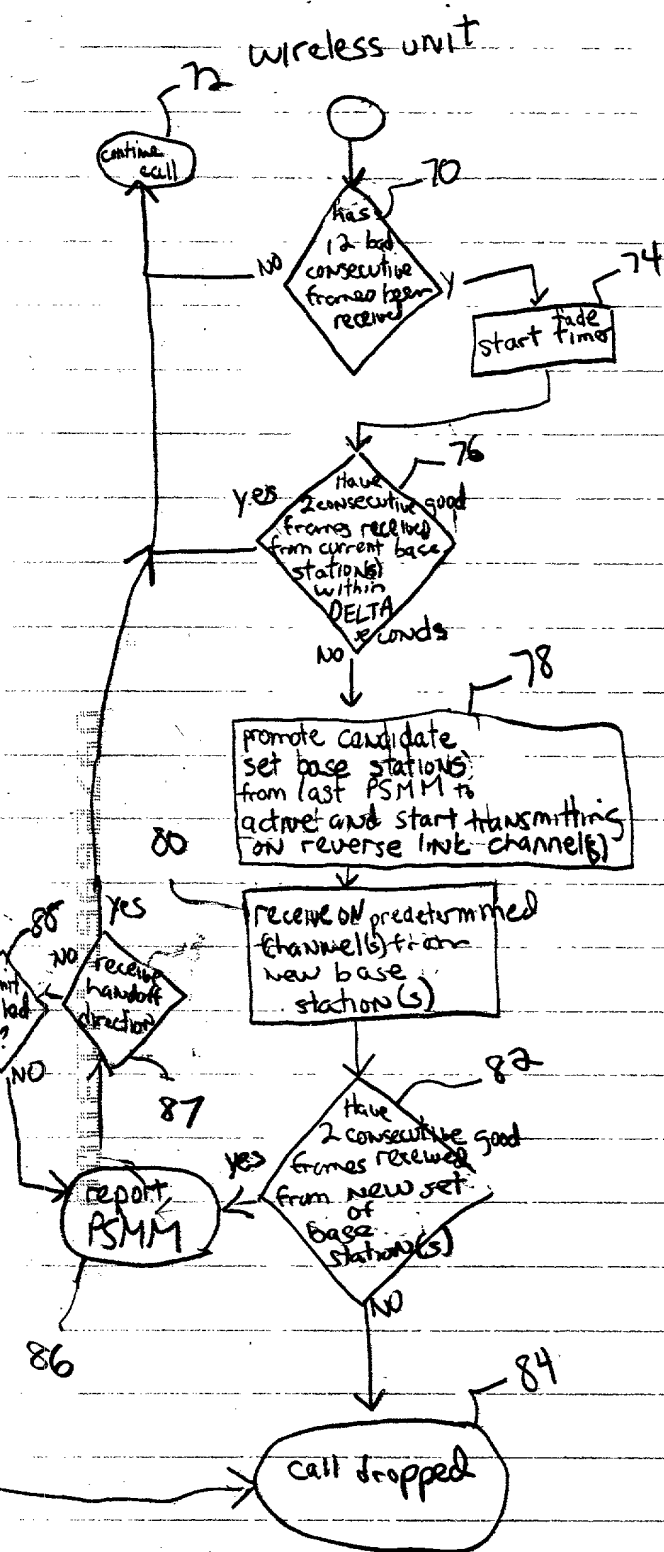 wireless unit
72
continue
call
70
has
12 bad
consecutive
frames been
received
NO
y
74
start fade
timer
76
yes
Have
2 consecutive good
frames received
from current base
station(s)
within
DELTA
seconds
NO
78
promote candidate
set base station(s)
from last PSMM to
active and start transmitting
on reverse link channel(s)
80
receive on predetermined
channel(s) from
new base
station(s)
yes
88
?
NO
receive
handoff
direction
bad
?
NO
87
82
Have
2 consecutive good
frames received
from new set
of
base
station(s)
yes
report
PSMM
86
NO
84
call dropped